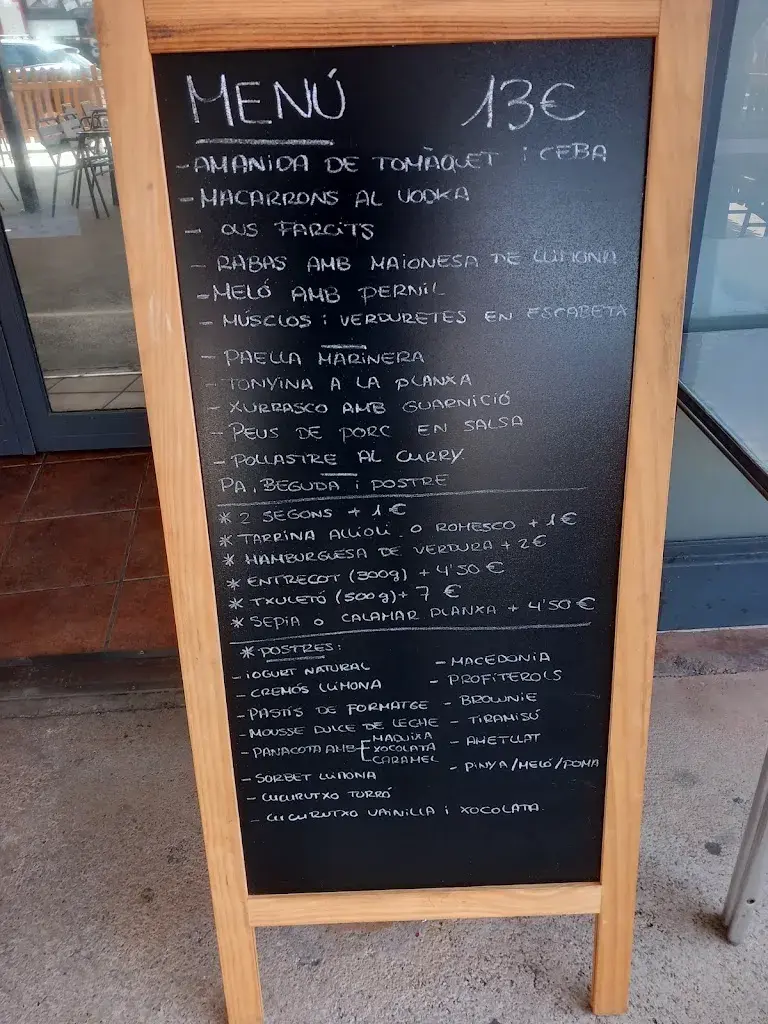 MENÚ 13€
- AMANIDA DE TOMÀQUET i CEBA
- MACARRONS AL VODKA
- OUS FARCITS
- RABAS AMB MAIONESA DE LLIMONA
- MELÓ AMB PERNIL
- MÚSCLOS i VERDURETES EN ESCABETA
- PAELLA MARINERA
- TONYINA A LA PLANXA
- XURRASCO AMB GUARNICIÓ
- PEUS DE PORC EN SALSA
- POLLASTRE AL CURRY
PA, BEGUDA i POSTRE
* 2 SEGONS + 1€
* TARRINA ALLIOLI O ROMESCO + 1€
* HAMBURGUESA DE VERDURA + 2€
* ENTRECOT (300g) + 4'50€
* TXULETÓ (500g) + 7€
* SEPIA O CALAMAR PLANXA + 4'50€
* POSTRES:
- IOGURT NATURAL
- CREMÓS LLIMONA
- PASTÍS DE FORMATGE
- MOUSSE DULCE DE LECHE
- PANACOTA AMB MADUIXA
XOCOLATA
CARAMEL
- SORBET LLIMONA
- CUCURUTXO TORRÓ
- CUCURUTXO VAINILLA i XOCOLATA
- MACEDONIA
- PROFITEROLS
- BROWNIE
- TIRAMISÚ
- AMETLLAT
- PINYA/MELÓ/POMA